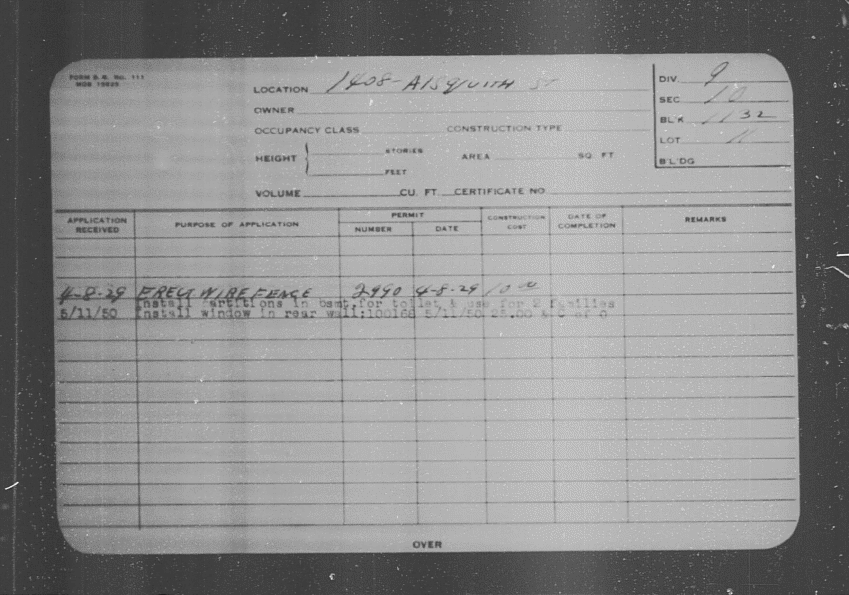 FORM B. B. No. 111
MOB 15825
LOCATION 1408- AISQUITH ST
OWNER
OCCUPANCY CLASS CONSTRUCTION TYPE
HEIGHT STORIES AREA SQ. FT
FEET
VOLUME CU. FT. CERTIFICATE NO
DIV. 9
SEC 10
BLK 1132
LOT 11
B'L'DG
APPLICATION RECEIVED PURPOSE OF APPLICATION PERMIT NUMBER DATE CONSTRUCTION COST DATE OF COMPLETION REMARKS
4-8-29 ERECT WIRE FENCE 2990 4-8-29 10 00
Install partitions in bsmt.for toilet & use for 2 families
5/11/50 Install window in rear wall;100168 5/11/50 25.00 & C of O
OVER